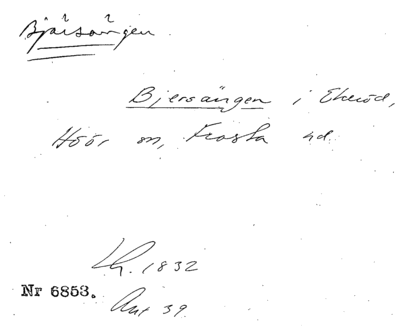 Bjärsängen.
Bjersängen i Ekeröd,
Höör sn, Frosta hd.
Lh. 1832
Nr 6853.
Ant 39.